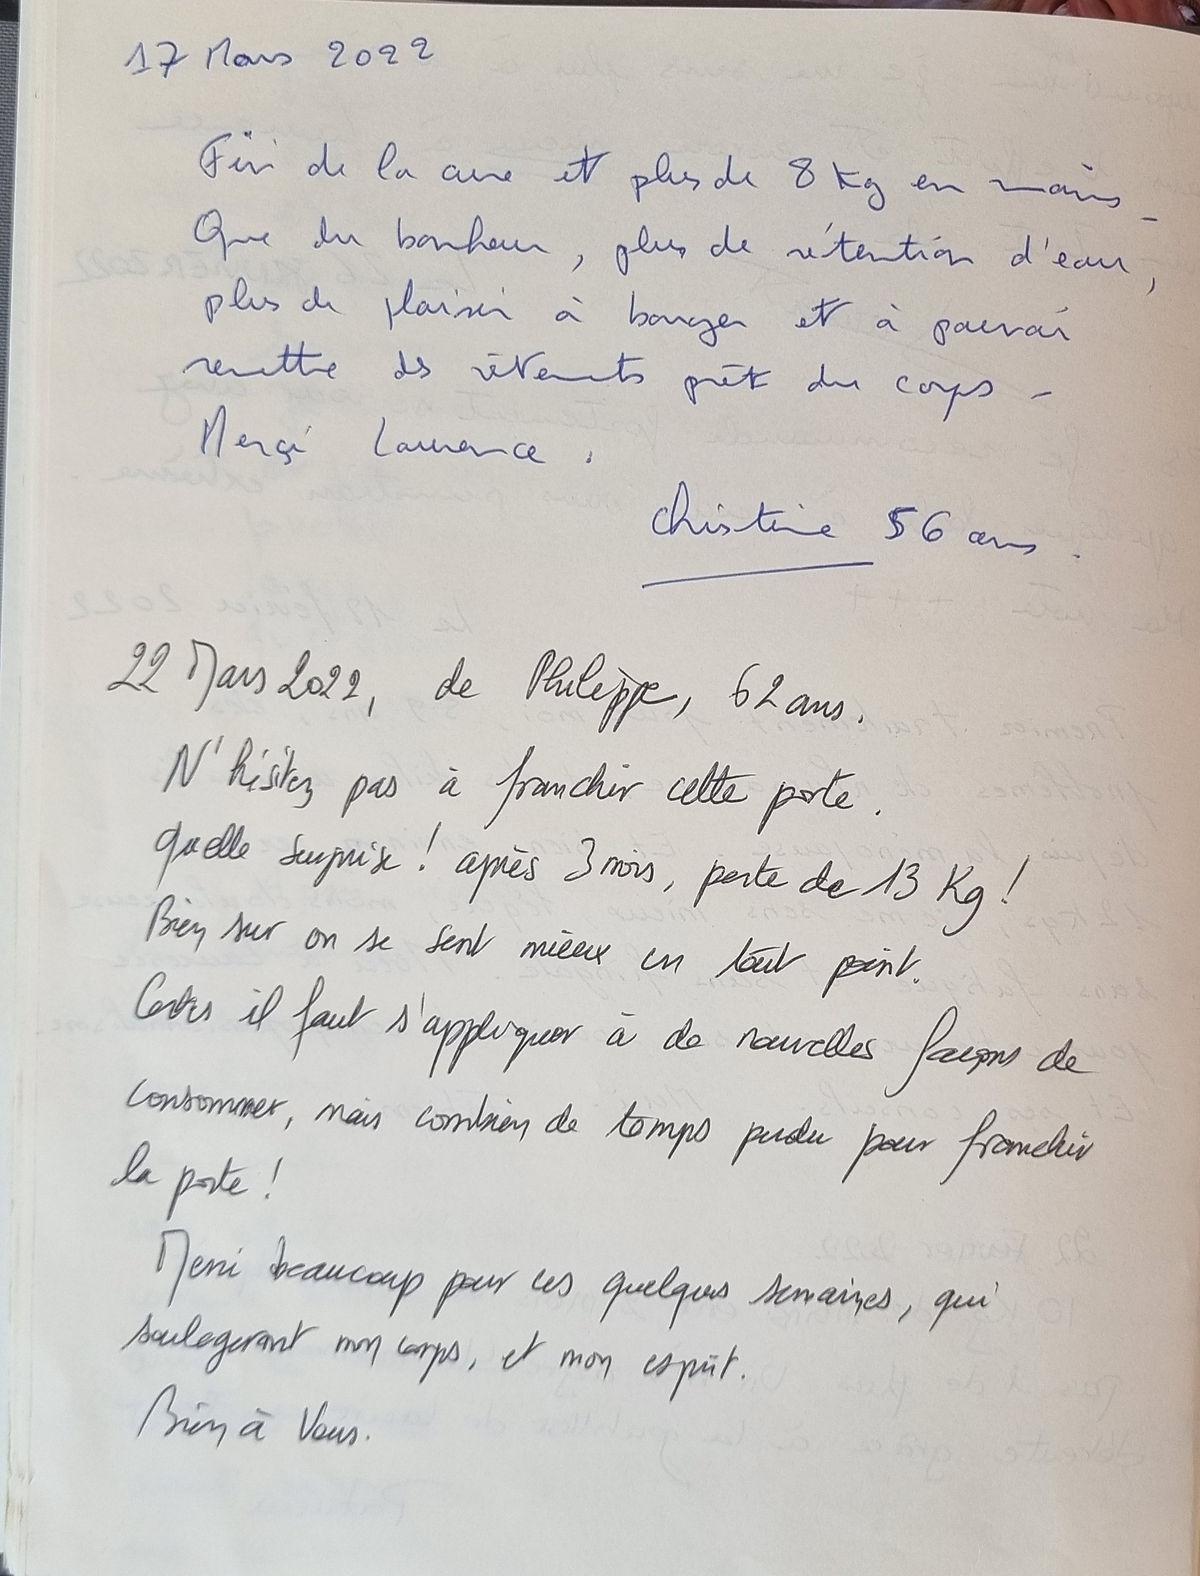 17 Mars 2022
Fin de la cure et plus de 8 Kg en moins -
Que du bonheur, plus de rétention d'eau,
plus de plaisir à bouger et à pouvoir
remettre des vêtements près du corps -
Merçi Laurence.
Christine 56 ans.
22 Mars 2022, de Philippe, 62 ans.
N'hésitez pas à franchir cette porte.
Quelle surprise ! après 3 mois, perte de 13 Kg !
Bien sur on se sent mieux en tout point.
Certes il faut s'appliquer à de nouvelles façons de
consommer, mais combien de temps perdu pour franchir
la porte !
Merci beaucoup pour ces quelques semaines, qui
soulagerant mon corps, et mon esprit.
Bien à Vous.